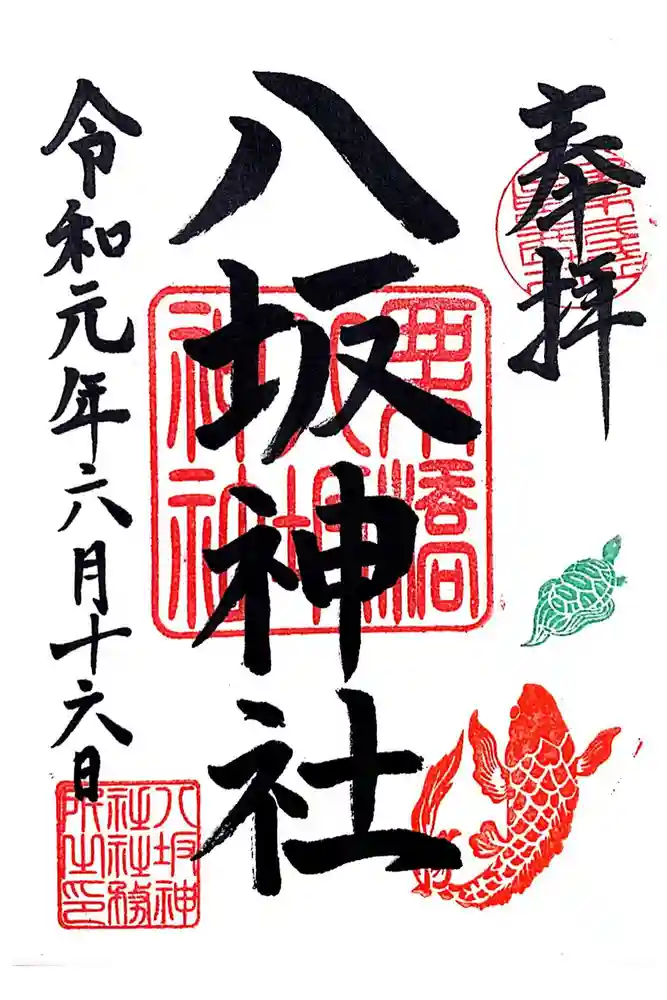 奉拝
八坂神社
令和元年六月十六日
栗橋
八坂
神社
八坂神
社社務
所之印